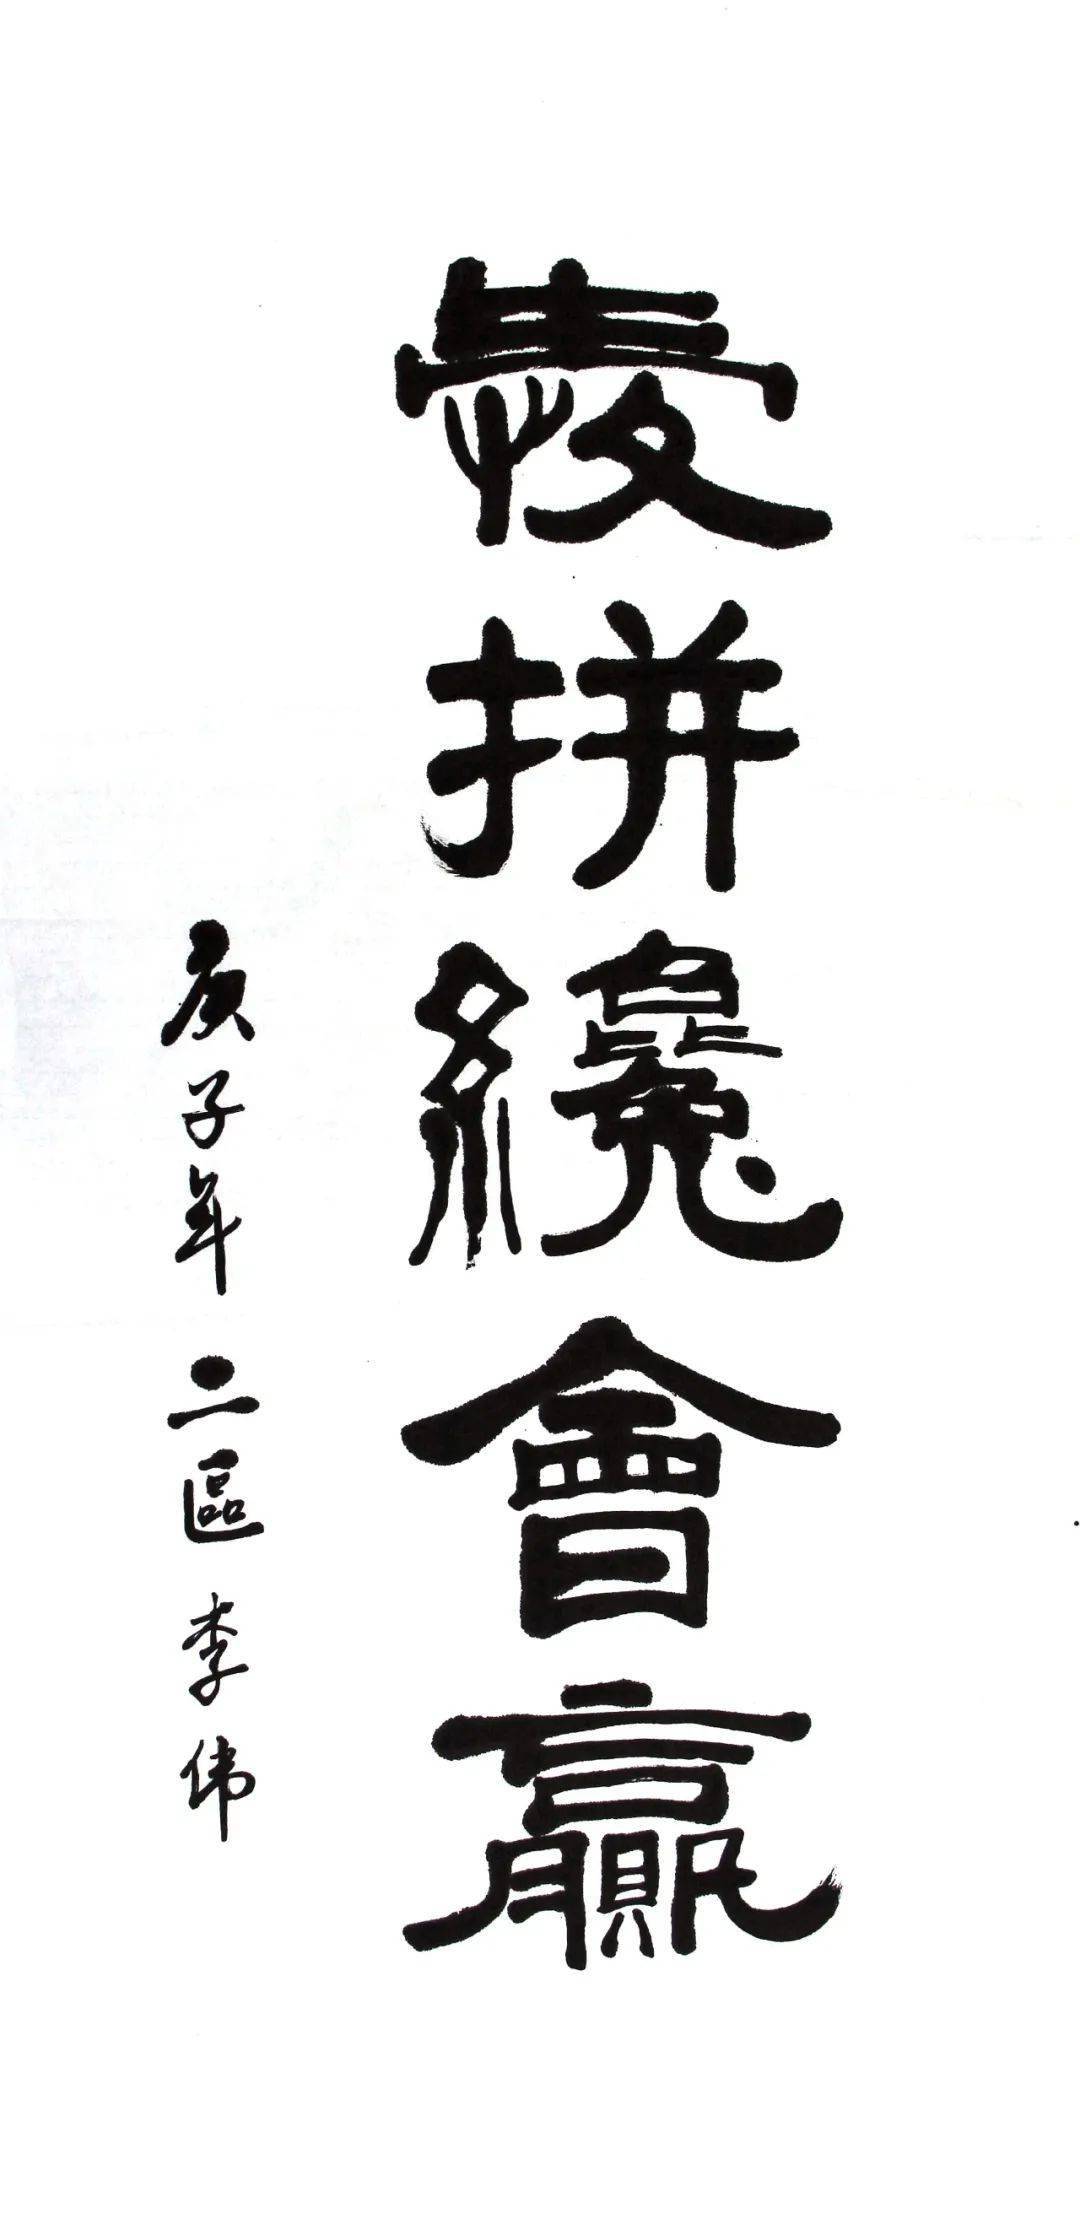 愛拼纔會贏
庚子年 二區 李伟